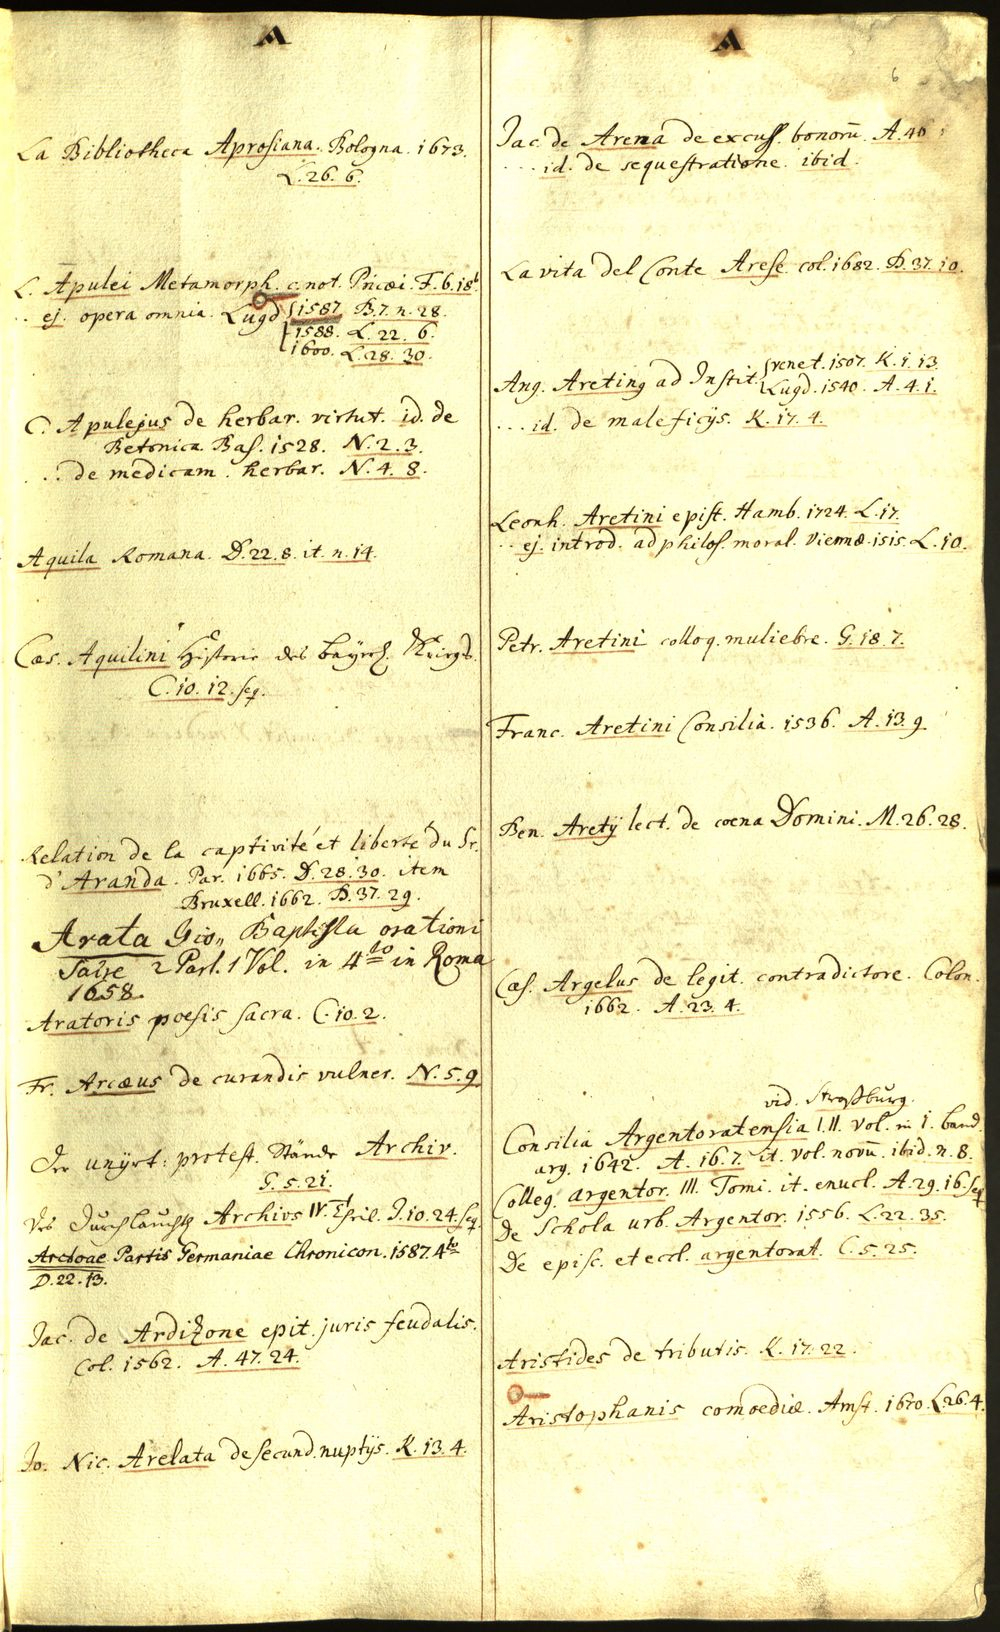 A
La Bibliotheca Aprosiana. Bologna. 1673.
L. 26. 6.
L. Apulei Metamorph. c. not. Pricæi. F. 6. 18
.. ej. opera omnia. Lugd. {1587 B. 7. n. 28.
1588. L. 22. 6.
1600. L. 28. 30.
C. Apulejus de herbar. virtut. id. de
Betonica. Bas. 1528. N. 2. 3.
... de medicam. herbar. N. 4. 8.
Aquila Romana. D. 22. 8. it. n. 14.
Cæs. Aquilini Historie des bayrsch. Kriegs.
C. 10. 12. seq.
Relation de la captivité et liberté du Sr.
d'Aranda. Par. 1665. D. 28. 30. item
Bruxell. 1662. B. 37. 29.
Arata Gio,, Baptista orationi
Salre 2 Part. 1 Vol. in 4to in Roma
1658.
Aratoris poesis sacra. C. 10. 2.
Fr. Arcæus de curandis vulner. N. 5. 9.
Der unyrt: protest. Stände Archiv.
G. 5. 21.
Des Durchlaucht Archivs IV. Theil. J. 10. 24. seq.
Arctoae Partis Germaniae Chronicon. 1587. 4to
D. 22. 13.
Jac. de Ardizone epit. juris feudalis.
Col. 1562. A. 47. 24.
Jo. Nic. Arelata de secund. nuptijs. K. 13. 4.
A
6
Jac. de Arena de excuss. bonorū. A. 40
... id. de sequestratione. ibid.
La vita del Conte Arese. col. 1682. B. 37. 10.
Ang. Areting ad Instit. {venet. 1507. K. 1. 13.
Lugd. 1540. A. 4. 1.
... id. de maleficijs. K. 17. 4.
Leonh. Aretini epist. Hamb. 1724. L. 17.
.. ej. introd. ad philos. moral. Viennæ. 1515. L. 10.
Petr. Aretini colloq. muliebre. G. 18. 7.
Franc. Aretini Consilia. 1536. A. 13. 9
Ben. Aretij lect. de coena Domini. M. 26. 28.
Cæs. Argelus de legit. contradictore. Colon.
1662. A. 23. 4.
vid. Straßburg.
Consilia Argentoratensia I. II. vol. in 1. band.
arg. 1642. A. 16. 7. it. vol. novū. ibid. n. 8.
Colleg. argentor. III. Tomi. it. enucl. A. 29. 16. seq
De Schola urb. Argentor. 1556. L. 22. 35.
De episc. et eccl. argentorat. C. 5. 25.
Aristides de tributis. K. 17. 22.
Aristophanis comoediæ. Amst. 1670. L. 26. 4.